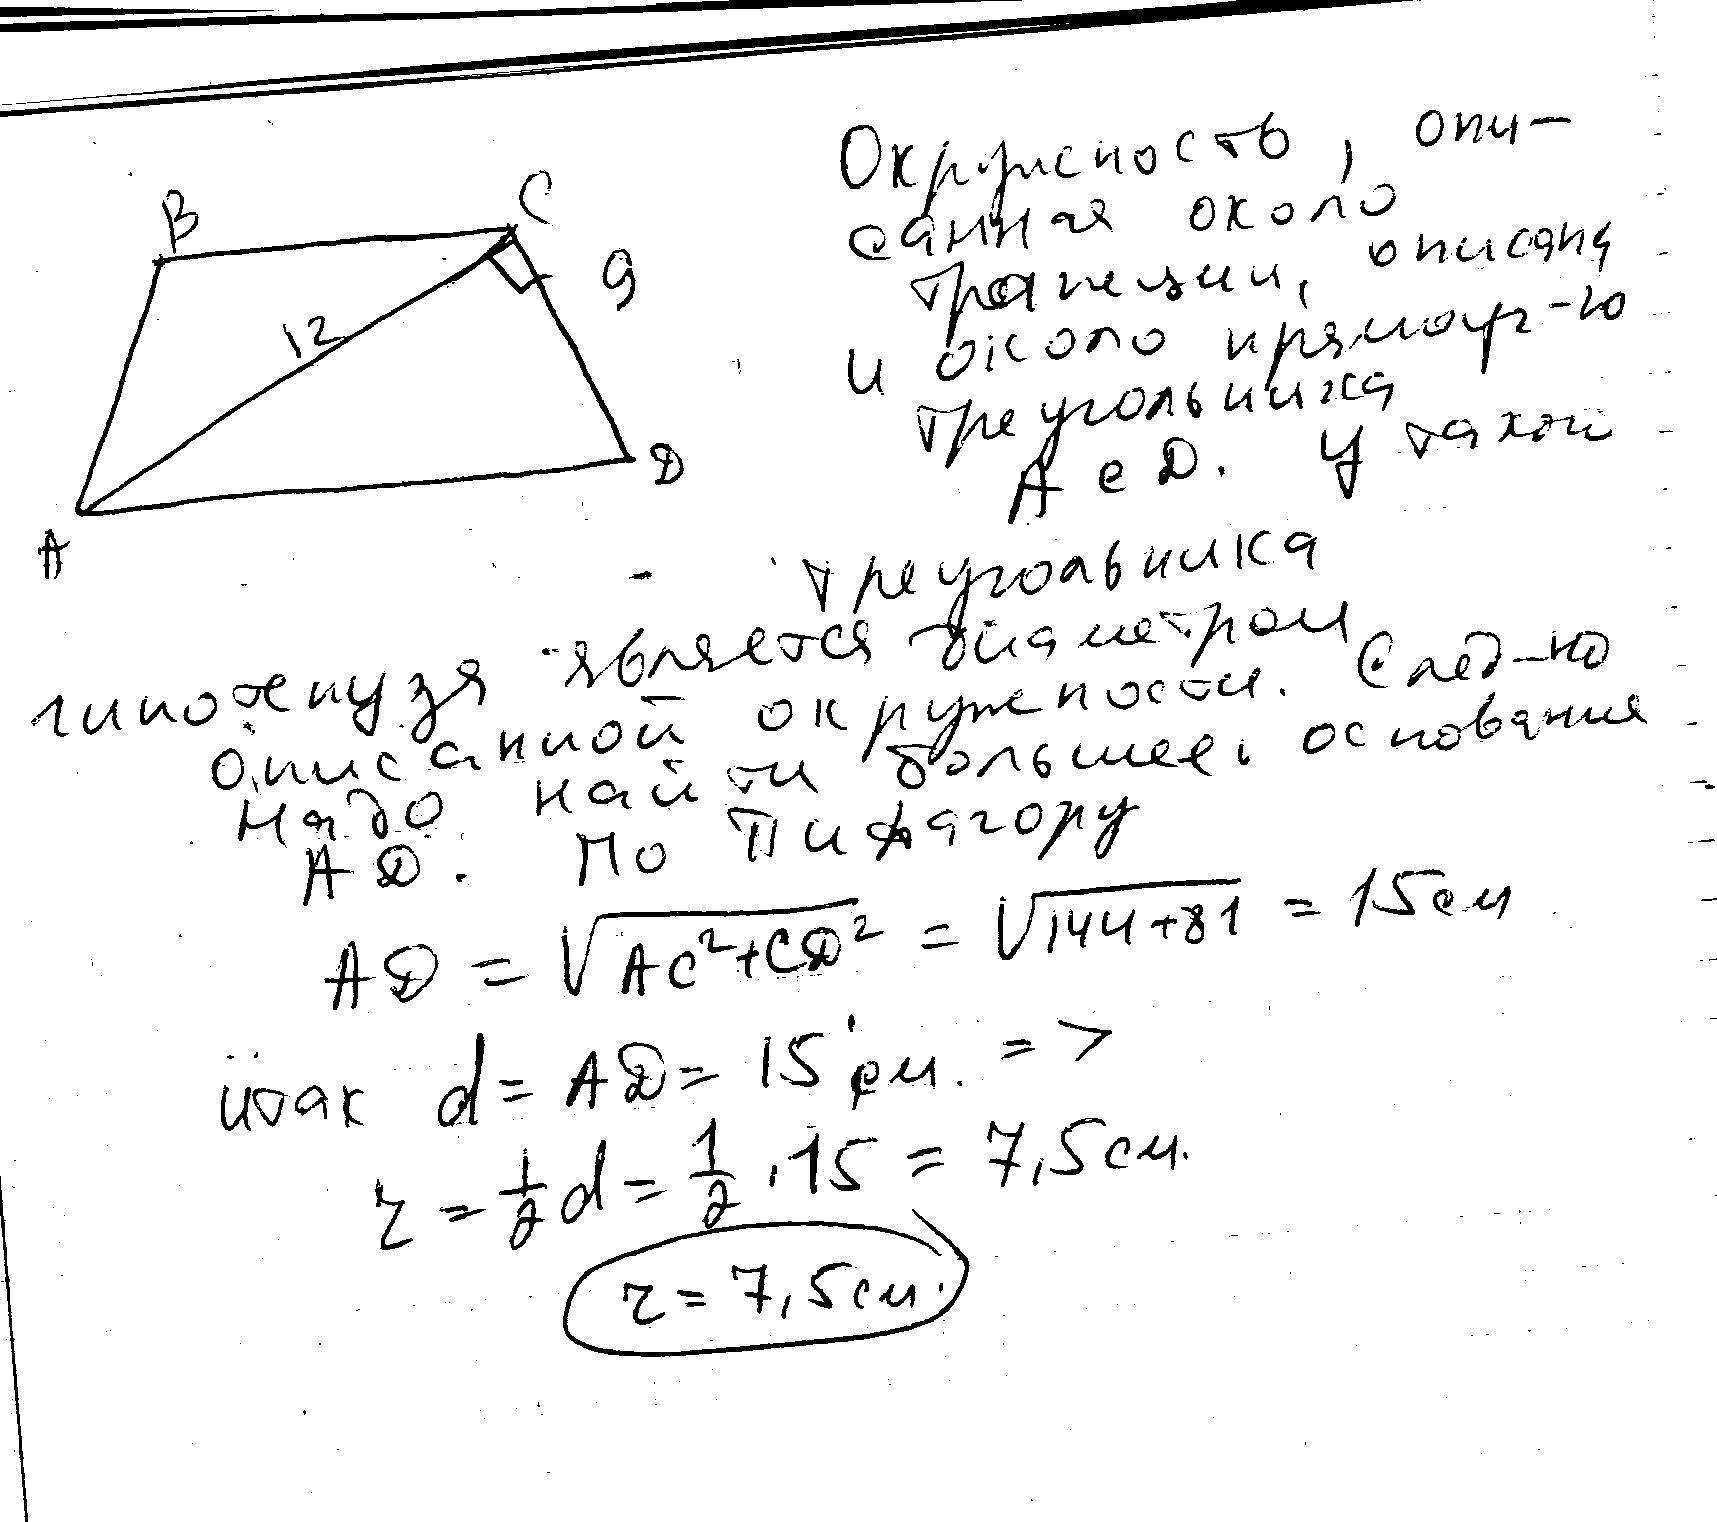 B
C
9
12
A
D
Окружность, опи-
санная около
трапеции, описана
и около прямоуг-го
треугольника
ACD. У такой
треугольника
гипотенуза является диаметром
описанной окружности. След-но
надо найти большее основание
AD. По Пифагору
AD = √AC²+CD² = √144+81 = 15 см
итак d = AD = 15 см. =>
r = 1/2 d = 1/2 · 15 = 7,5 см.
r = 7,5 см.